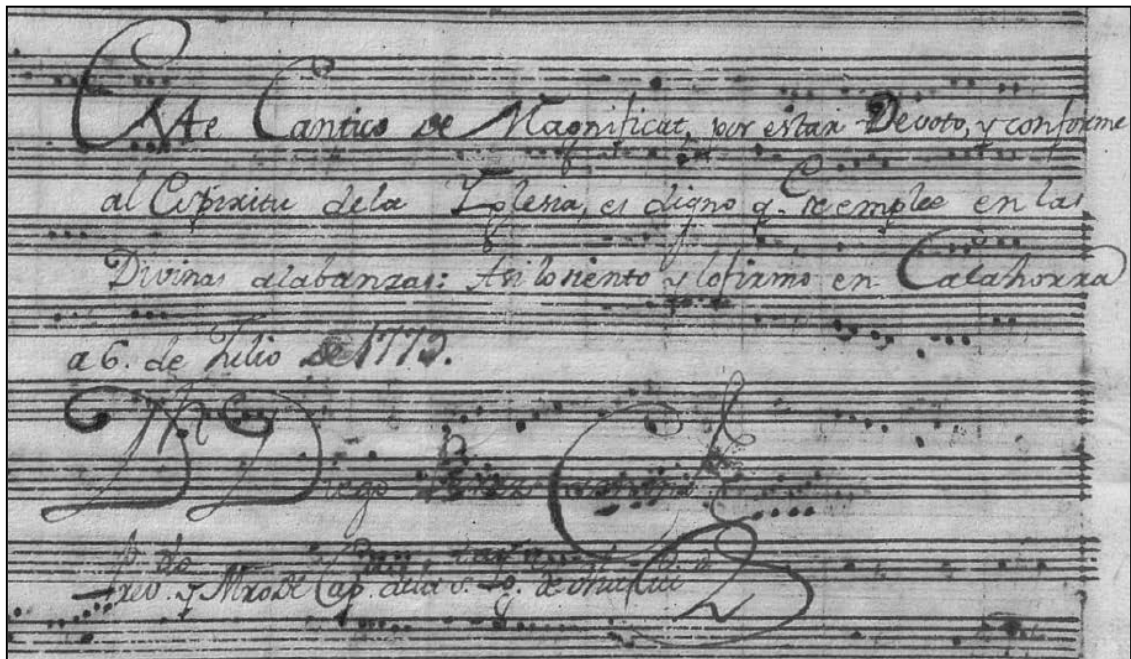 Este Cantico de Magnificat, por estar Devoto, y conforme
al Espiritu dela Yglesia, es digno q.e se emplee en las
Divinas alabanzas: Asi lo siento y lo firmo en Calahorra
a 6. de Julio de 1779.
Dn Diego Camino
Preb.do y Mro De Cap. dela S. Yg.